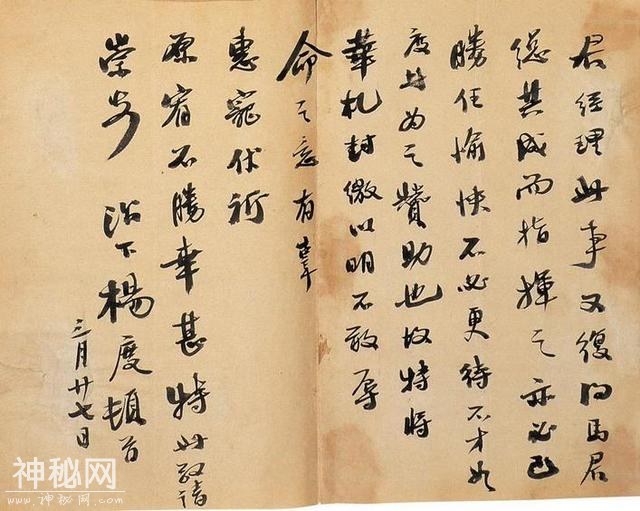 君经理此事又復得馬君
總其成而指揮之亦必已
勝任愉快不必更待不才如
度者为之贊助也故特將
華札封缴以明不敢辱
命之意有辜
惠寵伏祈
原宥不勝幸甚特此敬請
崇安 治下楊度頓首
三月廿七日
神秘网
www.神秘网.com